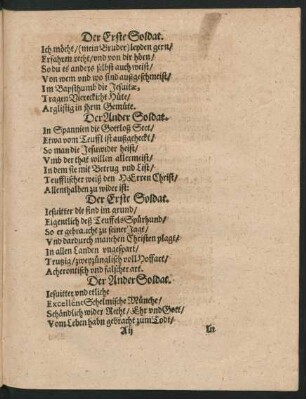 Der Erste Soldat.
Ich möcht/(mein Bruder) leyden gern/
Erfahren recht/ und von dir hörn/
So du es anders selbst auch weist/
Von wem und wo sind außgeschmeist/
Im Bapsthumb die Jesuitæ,
Tragen Viereckicht Hüte/
Arglistig in ihrem Gemüte.
Der Ander Soldat.
In Spannien die Gottloß Sect/
Etwa vom Teuffl ist außgeheckt/
So man die Jesuwider heist/
Vmb der that willen allermeist/
In dem sie mit Betrug und List/
Teufflischer weiß den HErren Christ/
Allenthalben zu wider ist:
Der Erste Soldat.
Jesuitter die sind im grund/
Eigentlich deß Teuffels Spürhund/
So er gebraucht zu seiner Jagt/
Vnd dardurch manchen Christen plagt/
In allen Landen ungespart/
Trutzig/ zweyzünglisch voll Hoffart/
Acherontisch und falscher art.
Der Ander Soldat.
Jesuitter und etliche
Excellent Schelmische Münche/
Schändlich wider Recht/ Ehr und Gott/
Vom Leben habn gebracht zum Todt/
A ij